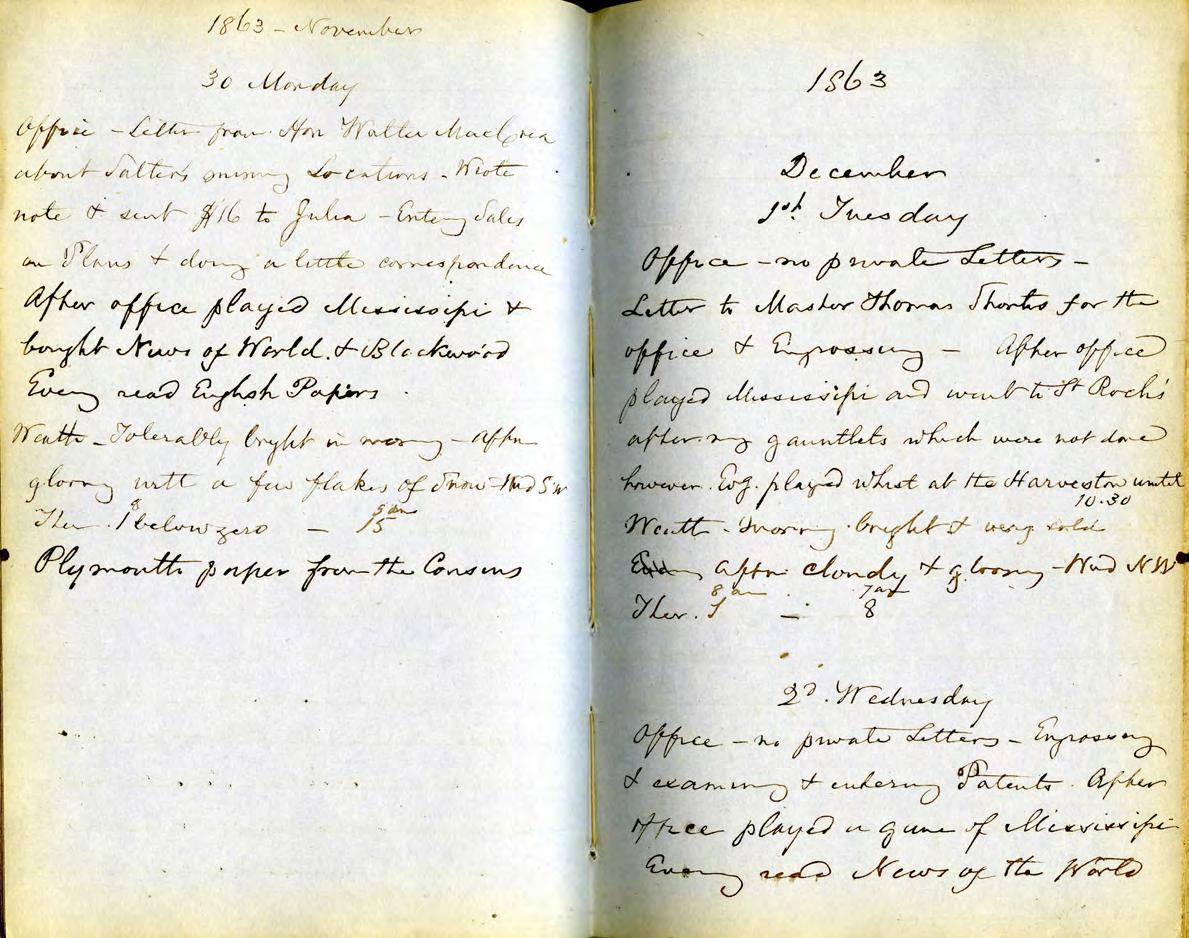 1863 - November
30 Monday
Office - Letter from Hon Walter MacCrea
about Salter's mining Locations - Wrote
note & sent $16 to Julia - Entering Sales
on Plans & doing a little correspondence
After office played Mississipi &
bought News of World. & Blackwood
Eveng read English Papers.
Weathr - Tolerably bright in morng - Aftn
gloomy with a few flakes of Snow - Wind SW
8
Ther. 1 below zero - 15
Plymouth paper from the Cousins
1863
December
1st Tuesday
Office - no private Letters -
Letter to Master Thomas Shortis for the
office & Engrossing - After office
played Mississipi and went to St Roch's
after my gauntlets which were not done
however. Evg. played whist at the Harveston until
10.30
Weathr - morning bright & very cold
aftn cloudy & gloomy - Wind NW
8 am
Ther. - 8
2d. Wednesday
Office - no private Letters - Engrossing
& examining & entering Patents. After
office played a game of Mississipi
Eveng read News of the World